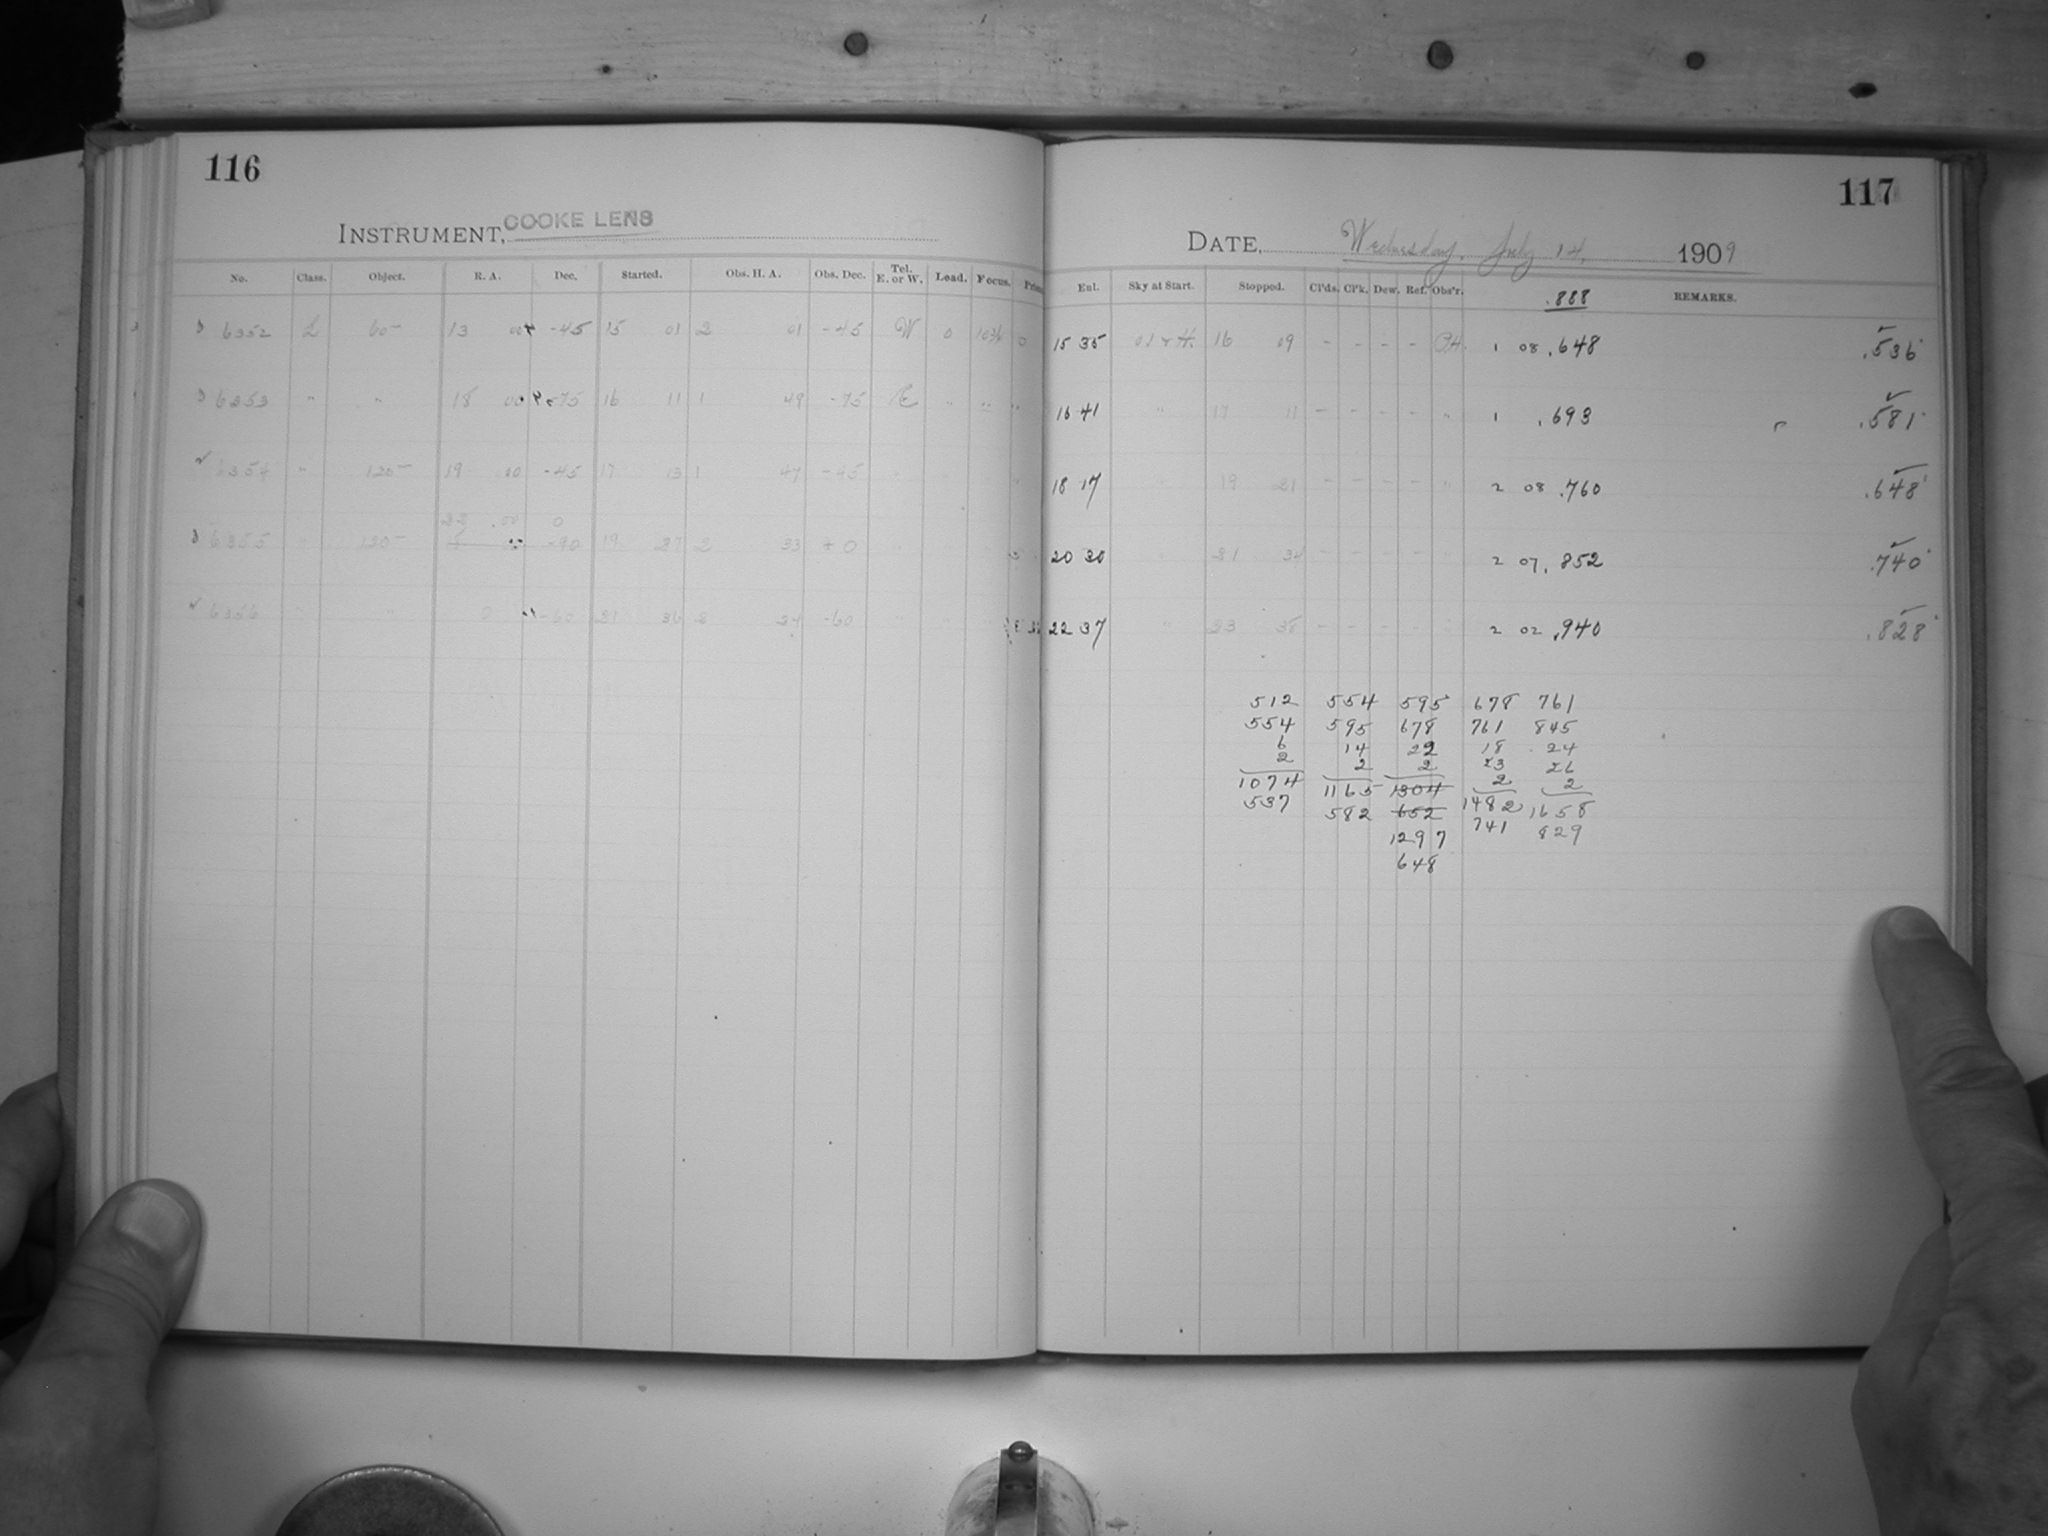 116
INSTRUMENT, COOKE LENS
No. Class. Object. R. A. Dec. Started. Obs. H. A. Obs. Dec. Tel. E. or W. Load. Focus.
6352 L 60- 13 00 -45 15 01 2 01 -45 W 0
6353 " " 18 00 -75 16 11 1 49 -75 E " "
6354 " 120- 19 00 -45 17 13 1 47 -45
22 00 0
6355 " 120- -90 19 27 2 33 0
6356 " 0 -60 21 36 2 24 -60
117
DATE, Wednesday, July 14, 1909
Ent. Sky at Start. Stopped. Cl'ds. Cl'k. Dew. Ref. Obs'r. REMARKS.
.888
15 35 16 09 - - - - 1 08 .648 .536
16 41 " 17 11 - - - - " 1 .693 .581
18 17 " 19 21 - - - - " 2 08 .760 .648
20 30 " 21 34 - - - - 2 07 .852 .740
22 37 " 23 38 - - - - 2 02 .940 .828
512 554 595 678 761
554 595 678 761 845
6 14 22 18 24
2 2 2 23 26
1074 1165 1304 2 2
537 582 652 1482 1658
1297 741 829
648